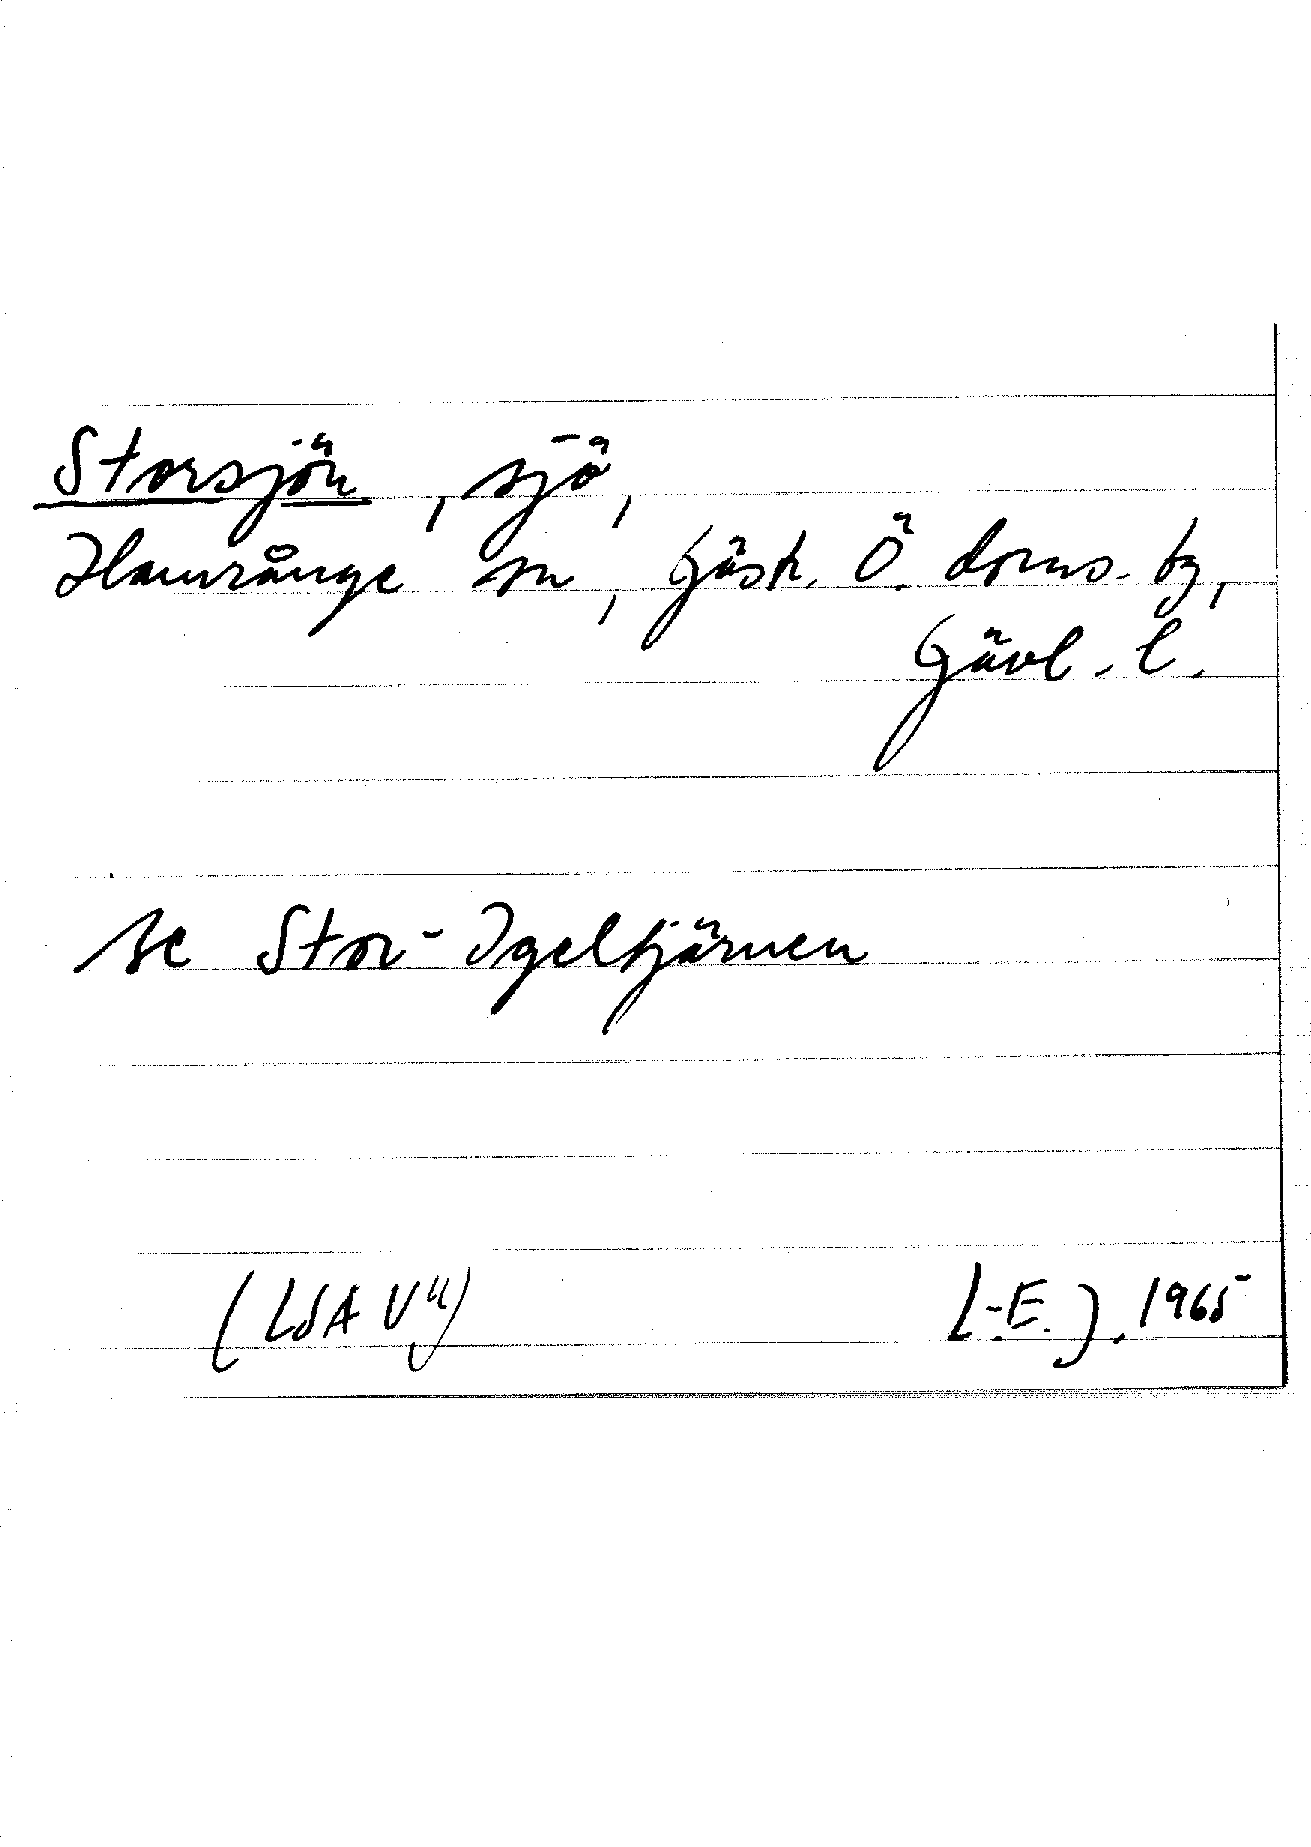 Storsjön, sjö,
Hamrånge sn, Gästr. Ö. doms. tg,
Gävl. l.
se Stor-Igeltjärnen
(LSA V 11)
[-E.], 1965